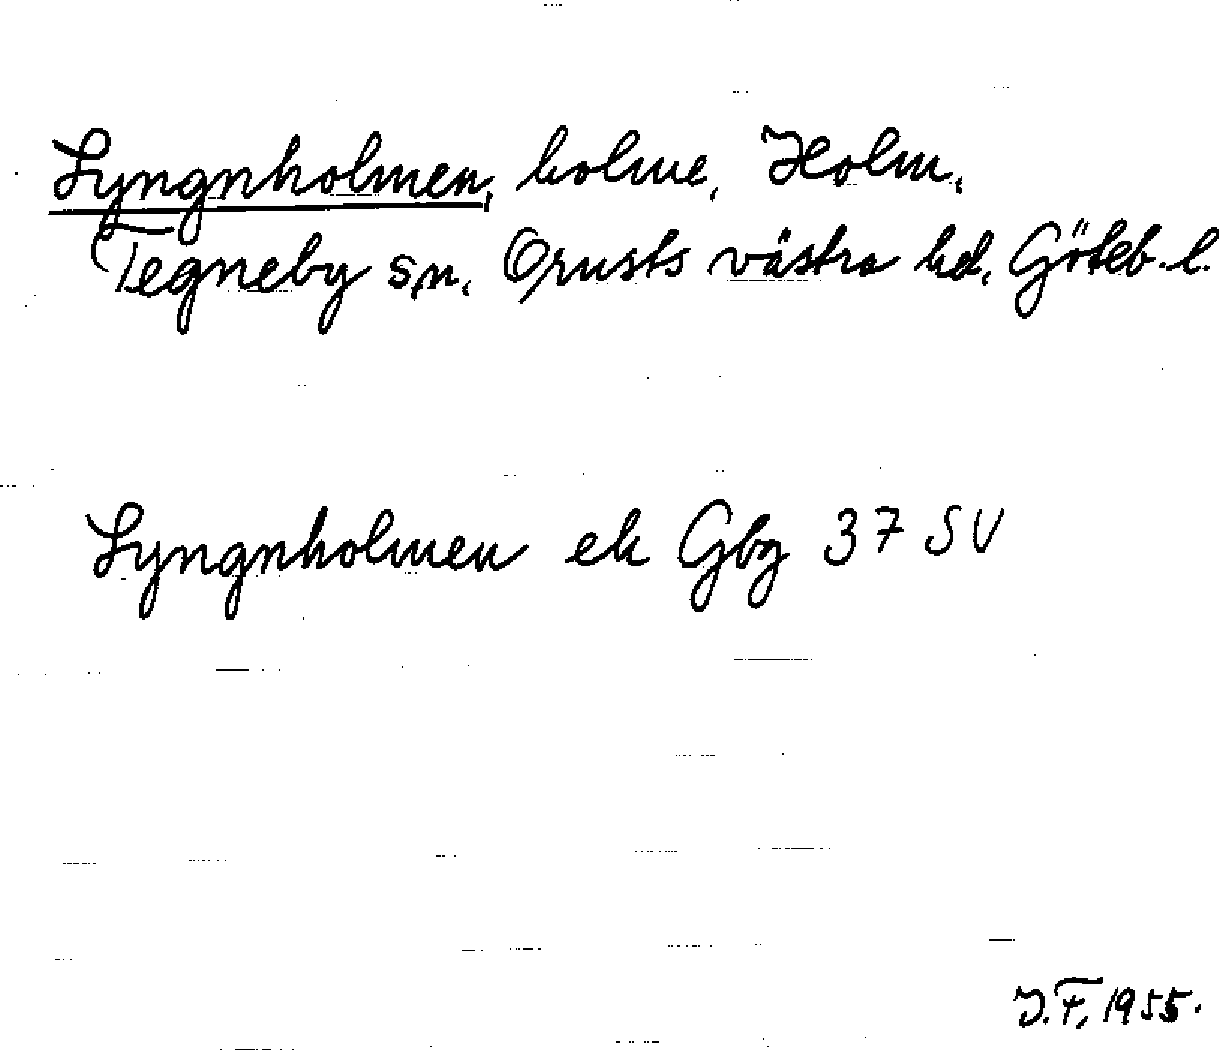 Lyngnholmen, holme, Holm,
Tegneby sn. Orusts västra hd. Göteb. l.
Lyngnholmen ek Gbg 37 SV
J.F. 1955.